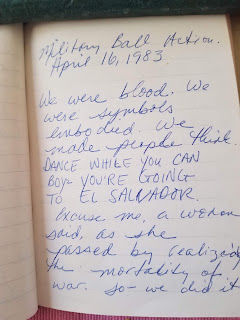 Military Ball Action.
April 16, 1983
We were blood. We
were symbols
embodied. We
made people think.
DANCE WHILE YOU CAN
BOY YOU'RE GOING
TO EL SALVADOR.
Excuse me, a woman
said, as she
passed by realizing
the mortality of
war. So- we did it